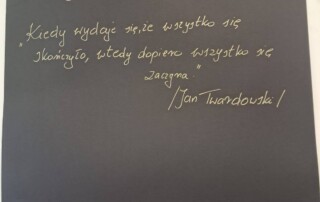 "Kiedy wydaje się, że wszystko się
skończyło, wtedy dopiero wszystko się
zaczyna"
/Jan Twardowski/